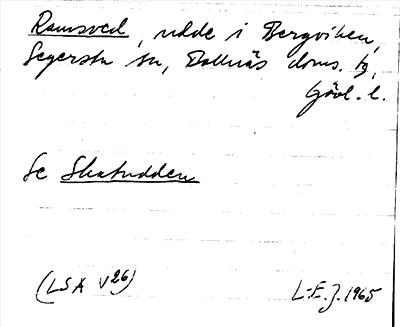 Ramsved, udde i Bergviken,
Segersta sn, Bollnäs doms. tg,
Gävl. l.
Se Skatudden
(LSA V26)
L-E. J. 1965